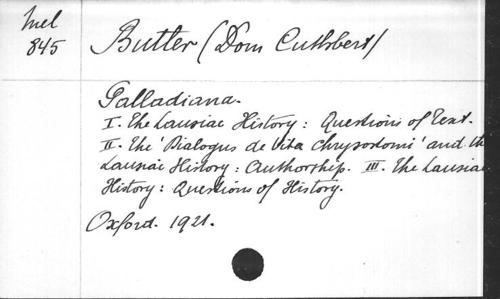 Mel
845
Butler (Dom Cuthbert)
Palladiana.
I. The Lausiac History: Questions of Text.
II. The 'Dialogus de Vita Chrysostomi' and the
Lausiac History: Authorship. III. The Lausiac
History: Questions of History.
Oxford. 1921.